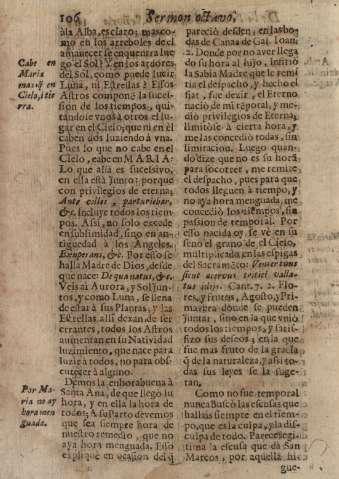 106 Sermon octavo,
à la Alba, es claro; mas co-
mo en los arreboles de el
amanecer se enquentra lue-
go el Sol? Y en los ardores
del Sol, como puede lucir
Luna, ni Estrellas? Essos
Astros compone la succes-
sion de los tiempos, qui-
tandole vnos à otros el lu-
gar en el Cielo; que ni en èl
caben dos luziendo à vna.
Pues lo que no cabe en el
Cielo, cabe en MARIA:
Lo que alla es sucesivo,
en ella està junto: porque
con privilegios de eterna,
Ante colles, parturiebar,
&c. incluye todos los tiem-
pos. Assi, no solo excede
en sublimidad, sino en an-
tiguedad à los Angeles.
Exuperans, &c. Por esso se
halla Madre de Dios, desde
que nace: De qua natus, &c.
Veis ai Aurora, y Sol jun-
tos, y como Luna, se llena
de estar à sus Plantas, y las
Estrellas alli dexan de ser
errantes, todos los Astros
aumentan en su Natividad
luzimiento, que nace para
luzir à todos, no para obs-
curecer à alguno.
Demos la enhorabuena à
Santa Ana, de que llegò su
hora, y en ella la hora de
todos; A su parto devemos
que sea siempre hora de
nuestro remedio, que no
aya hora menguada. Esso
explique en ocasion del q
Cabe en
Maria
mas q̃ en
Cielo, i tie
rra.
Por Ma-
ria no ay
hora men
guada.
pareciò desden, en las bo-
das de Canà de Gal. Ioan.
2. Donde por no aver llega-
do su hora al hijo, insistiò
la Sabia Madre que le remi-
tìa el despacho, y hecho el
fiat, fue dezir, el Eterno
naciò de mi temporal, y me-
diò privilegios de Eterna,
limitòle à cierta hora, y
me las concediò todas, sin
limitacion. Luego quan-
do dize que no es su hora
para socorrer, me remite
el despacho, pues para que
todos lleguen à tiempo, y
no aya hora menguada, me
concediò los tiempos, sin
passion de temporal. Por
esso preñada ò se vè en su
seno el grano de el Cielo,
multiplicado en las espigas
del Sacramēto: Venter tuus
sicut acervus tritici valla-
tus lilijs. Cant. 7. 2. Flo-
res, y frutos, Agosto, y Pri-
mavera dònde se pueden
juntar, sino en la que vniò
todos los tiempos, y satis-
fizo sus deseos; en la que
fue mas fruto de la gracia,
q̃ de la naturaleza, y assi to-
das sus leyes se la suge-
tan.
Como no fue temporal
nunca buscò las escusas que
hallais siempre en el tiem-
po, que es la culpa, y la dis-
culpa de todo. Parece legi-
tima la escusa que dà San
Marcos, por aquella hi-
gue-